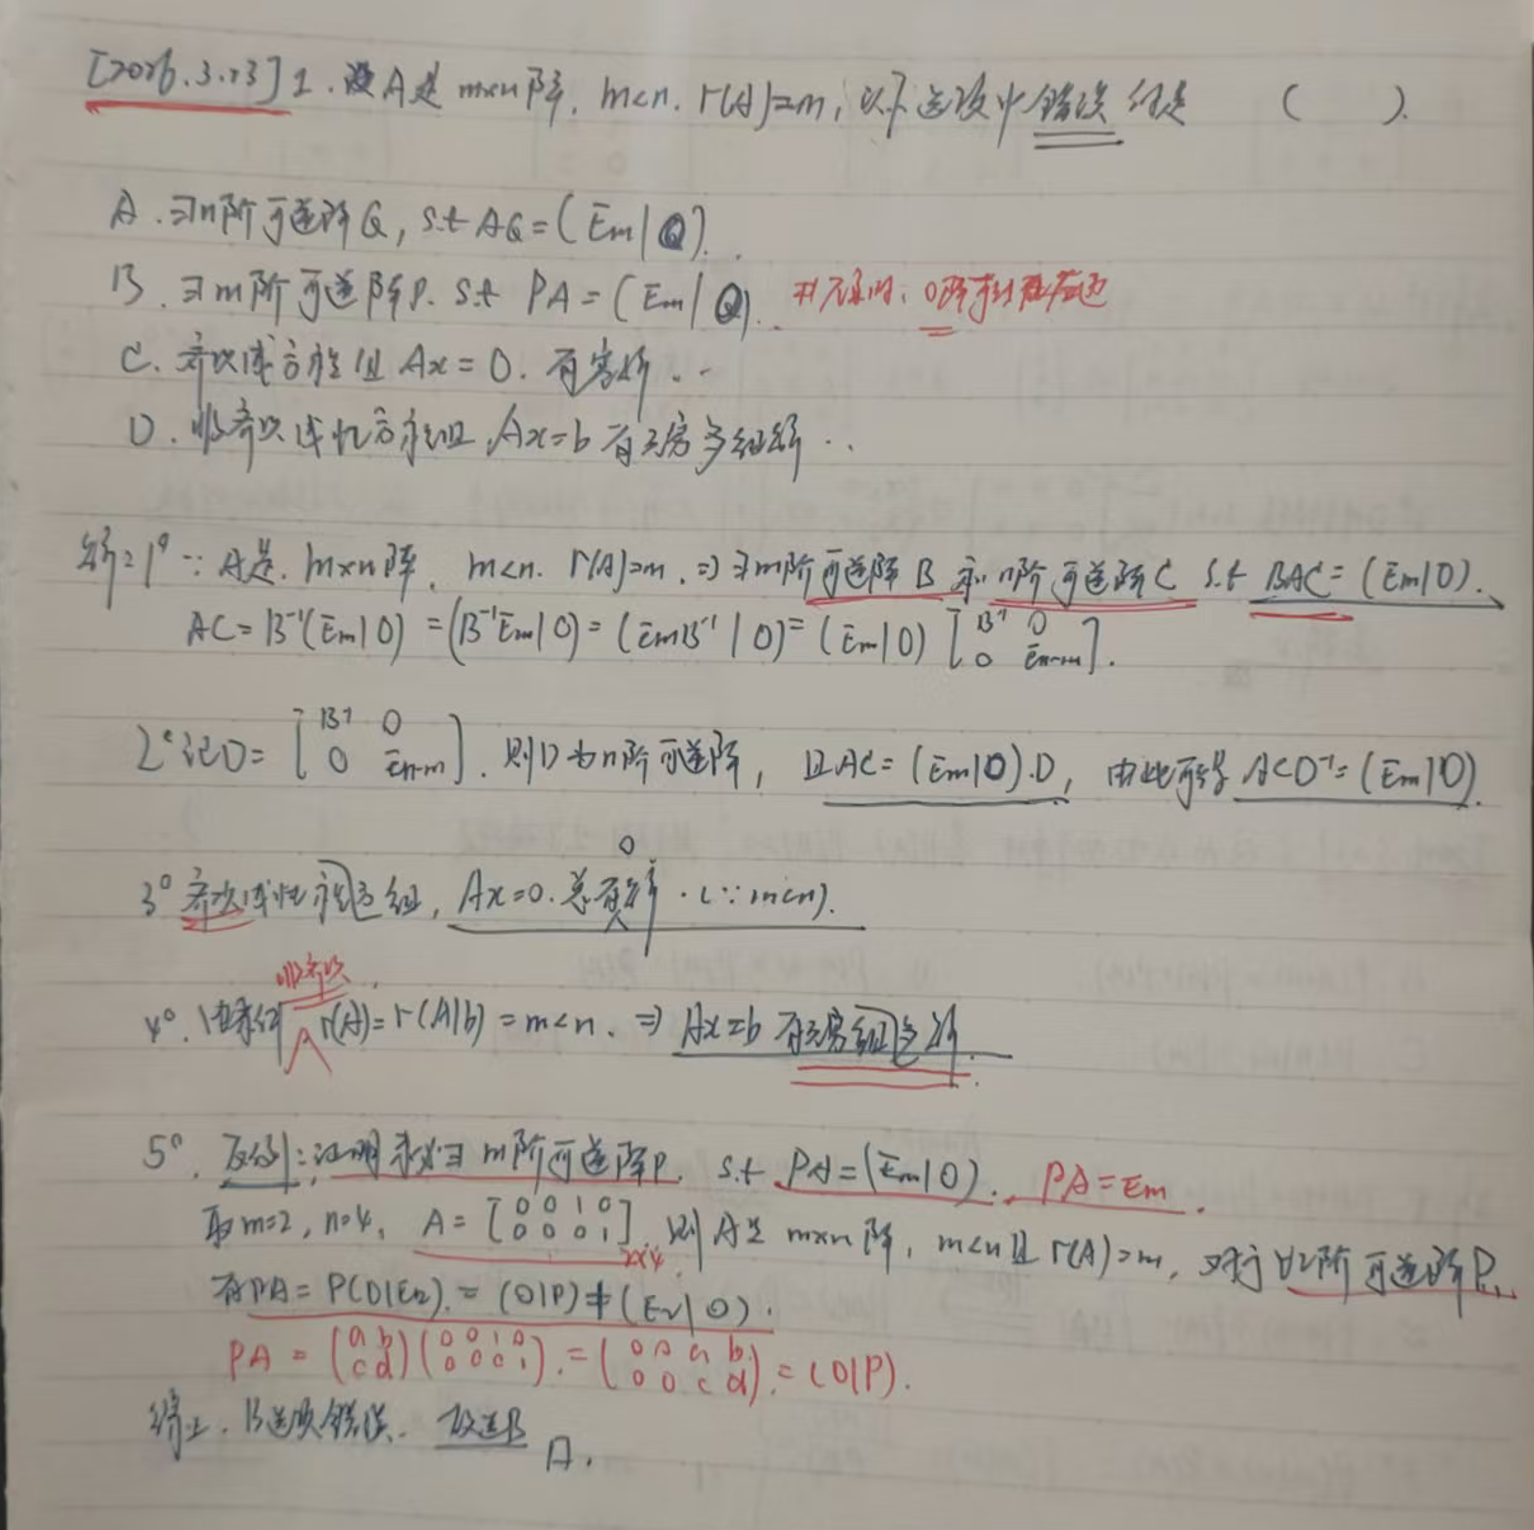 [2026.3.23] 1. 设A是 m×n阵. m<n. r(A)=m, 以下选项中错误的是 ( ).
A. ∃n阶可逆阵Q, s.t AQ=(Em|O).
B. ∃m阶可逆阵P. s.t PA=(Em|O). 0阵 在右边
C. 齐次线方程组 Ax=0. 有零解.
D. 非齐次线性方程组 Ax=b 有无穷多组解.
解: 1° ∵A是 m×n阵. m<n. r(A)=m. ⇒ ∃m阶可逆阵B 和 n阶可逆阵C s.t BAC=(Em|0).
AC=B⁻¹(Em|0)=(B⁻¹Em|0)=(EmB⁻¹|0)=(Em|0)[B⁻¹ 0
0 En-m].
2° 记D=[B⁻¹ 0
0 En-m]. 则D为n阶可逆阵, 且AC=(Em|0).D, 由此可得 ACD⁻¹=(Em|0).
3° 齐次线性方程组, Ax=0. 总有0解. (∵m<n).
4°. 非齐次 r(A)=r(A|b)=m<n. ⇒ Ax=b 有无穷组解.
5°. 反例: 证明未必∃ m阶可逆阵P. s.t PA=(Em|0). PA=Em.
取m=2, n=4, A=[0 0 1 0
0 0 0 1]2×4. 则A是 m×n阵, m<n且r(A)=m, 对于∀2阶可逆阵P,
有PA=P(0|E2)=(0|P)≠(E2|0).
PA=(a b
c d)(0 0 1 0
0 0 0 1).=(0 0 a b
0 0 c d).=(0|P).
综上. B选项错误. 故选B
A.